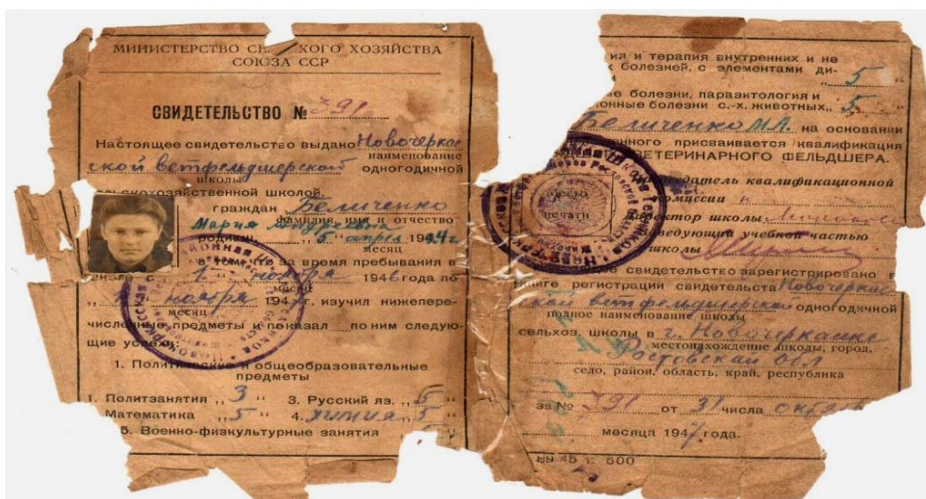 МИНИСТЕРСТВО СЕ ХОГО ХОЗЯЙСТВА
СОЮЗА ССР
СВИДЕТЕЛЬСТВО № 391
Настоящее свидетельство выдано Новочеркас
наименование
ской ветфельдшерской одногодичной
школы
скохозяйственной школой.
граждан Беличенко
фамилия, имя и отчество
Мария
родивш 5 апрел 19 4 г
месяц
в том, что за время пребывания в
школе с 1 ноября 1946 года по
месяц
ноября 1947 г. изучил нижепере-
месяц
численные предметы и показал по ним следую-
щие успехи:
1. Политические и общеобразовательные
предметы
1. Политзанятия „ 3 “ 3. Русский яз. „ 5 “
Математика „ 5 “ 4. химия „ 5 “
5. Военно-физкультурные занятия
ия и терапия внутренних и не
х болезней, с элементами ди-
5
ые болезни, паразитология и
ионные болезни с.-х. животных „ 5 “
Беличенко М.А. на основании
енного присваивается квалификация
ВЕТЕРИНАРНОГО ФЕЛЬДШЕРА.
датель квалификационной
омиссии
место
печати
ректор школы
ведующий учебной частью
школы
свидетельство зарегистрировано в
ниге регистрации свидетельств Новочеркас
ской ветфельдшерской одногодичной
полное наименование школы
сельхоз. школы в г. Новочеркасске
местонахождение школы, город,
Ростовской обл
село, район, область, край, республика
за № 391 от 31 числа октяб
месяца 1947 года.
89 45 г. 500